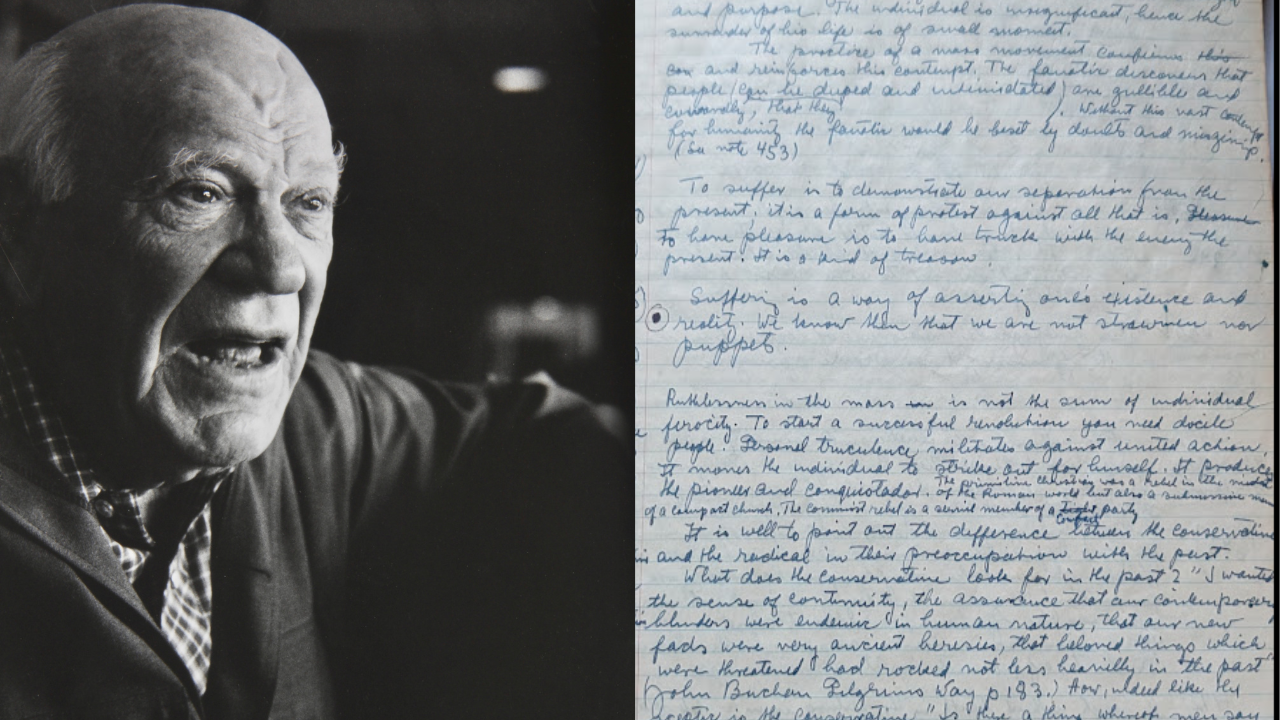 and purpose. The individual is insignificant, hence the
surrender of his life is of small moment.
The practice of a mass movement confirms this
con and reinforces this contempt. The fanatic discovers that
people (can be duped and intimidated) are gullible and
cowardly, that they . Without this vast contempt
for humanity the fanatic would be beset by doubts and misgivings.
(See note 453)
To suffer is to demonstrate our separation from the
present; it is a form of protest against all that is. Pleasure
To have pleasure is to have truck with the enemy the
present. It is a kind of treason.
Suffering is a way of asserting one's existence and
reality. We know then that we are not strawmen nor
puppets.
Ruthlessness in the mass is not the sum of individual
ferocity. To start a successful revolution you need docile
people. Personal truculence militates against united action.
It moves the individual to strike out for himself. It produces
the pioneer and conquistador. The primitive Christian was a rebel in the midst
of the Roman world but also a submissive man
of a compact church. The communist rebel is a servile member of a tight party
compact
It is well to point out the difference between the conservative
and the radical in their preoccupation with the past.
What does the conservative look for in the past? "I wanted
the sense of continuity, the assurance that our contemporary
blunders were endemic in human nature, that our new
fads were very ancient heresies, that beloved things which
were threatened had rocked not less heavily in the past"
(John Buchan Pilgrims Way p 183.) How, indeed like the
sceptic is the conservative "Is there a thing whereof men say